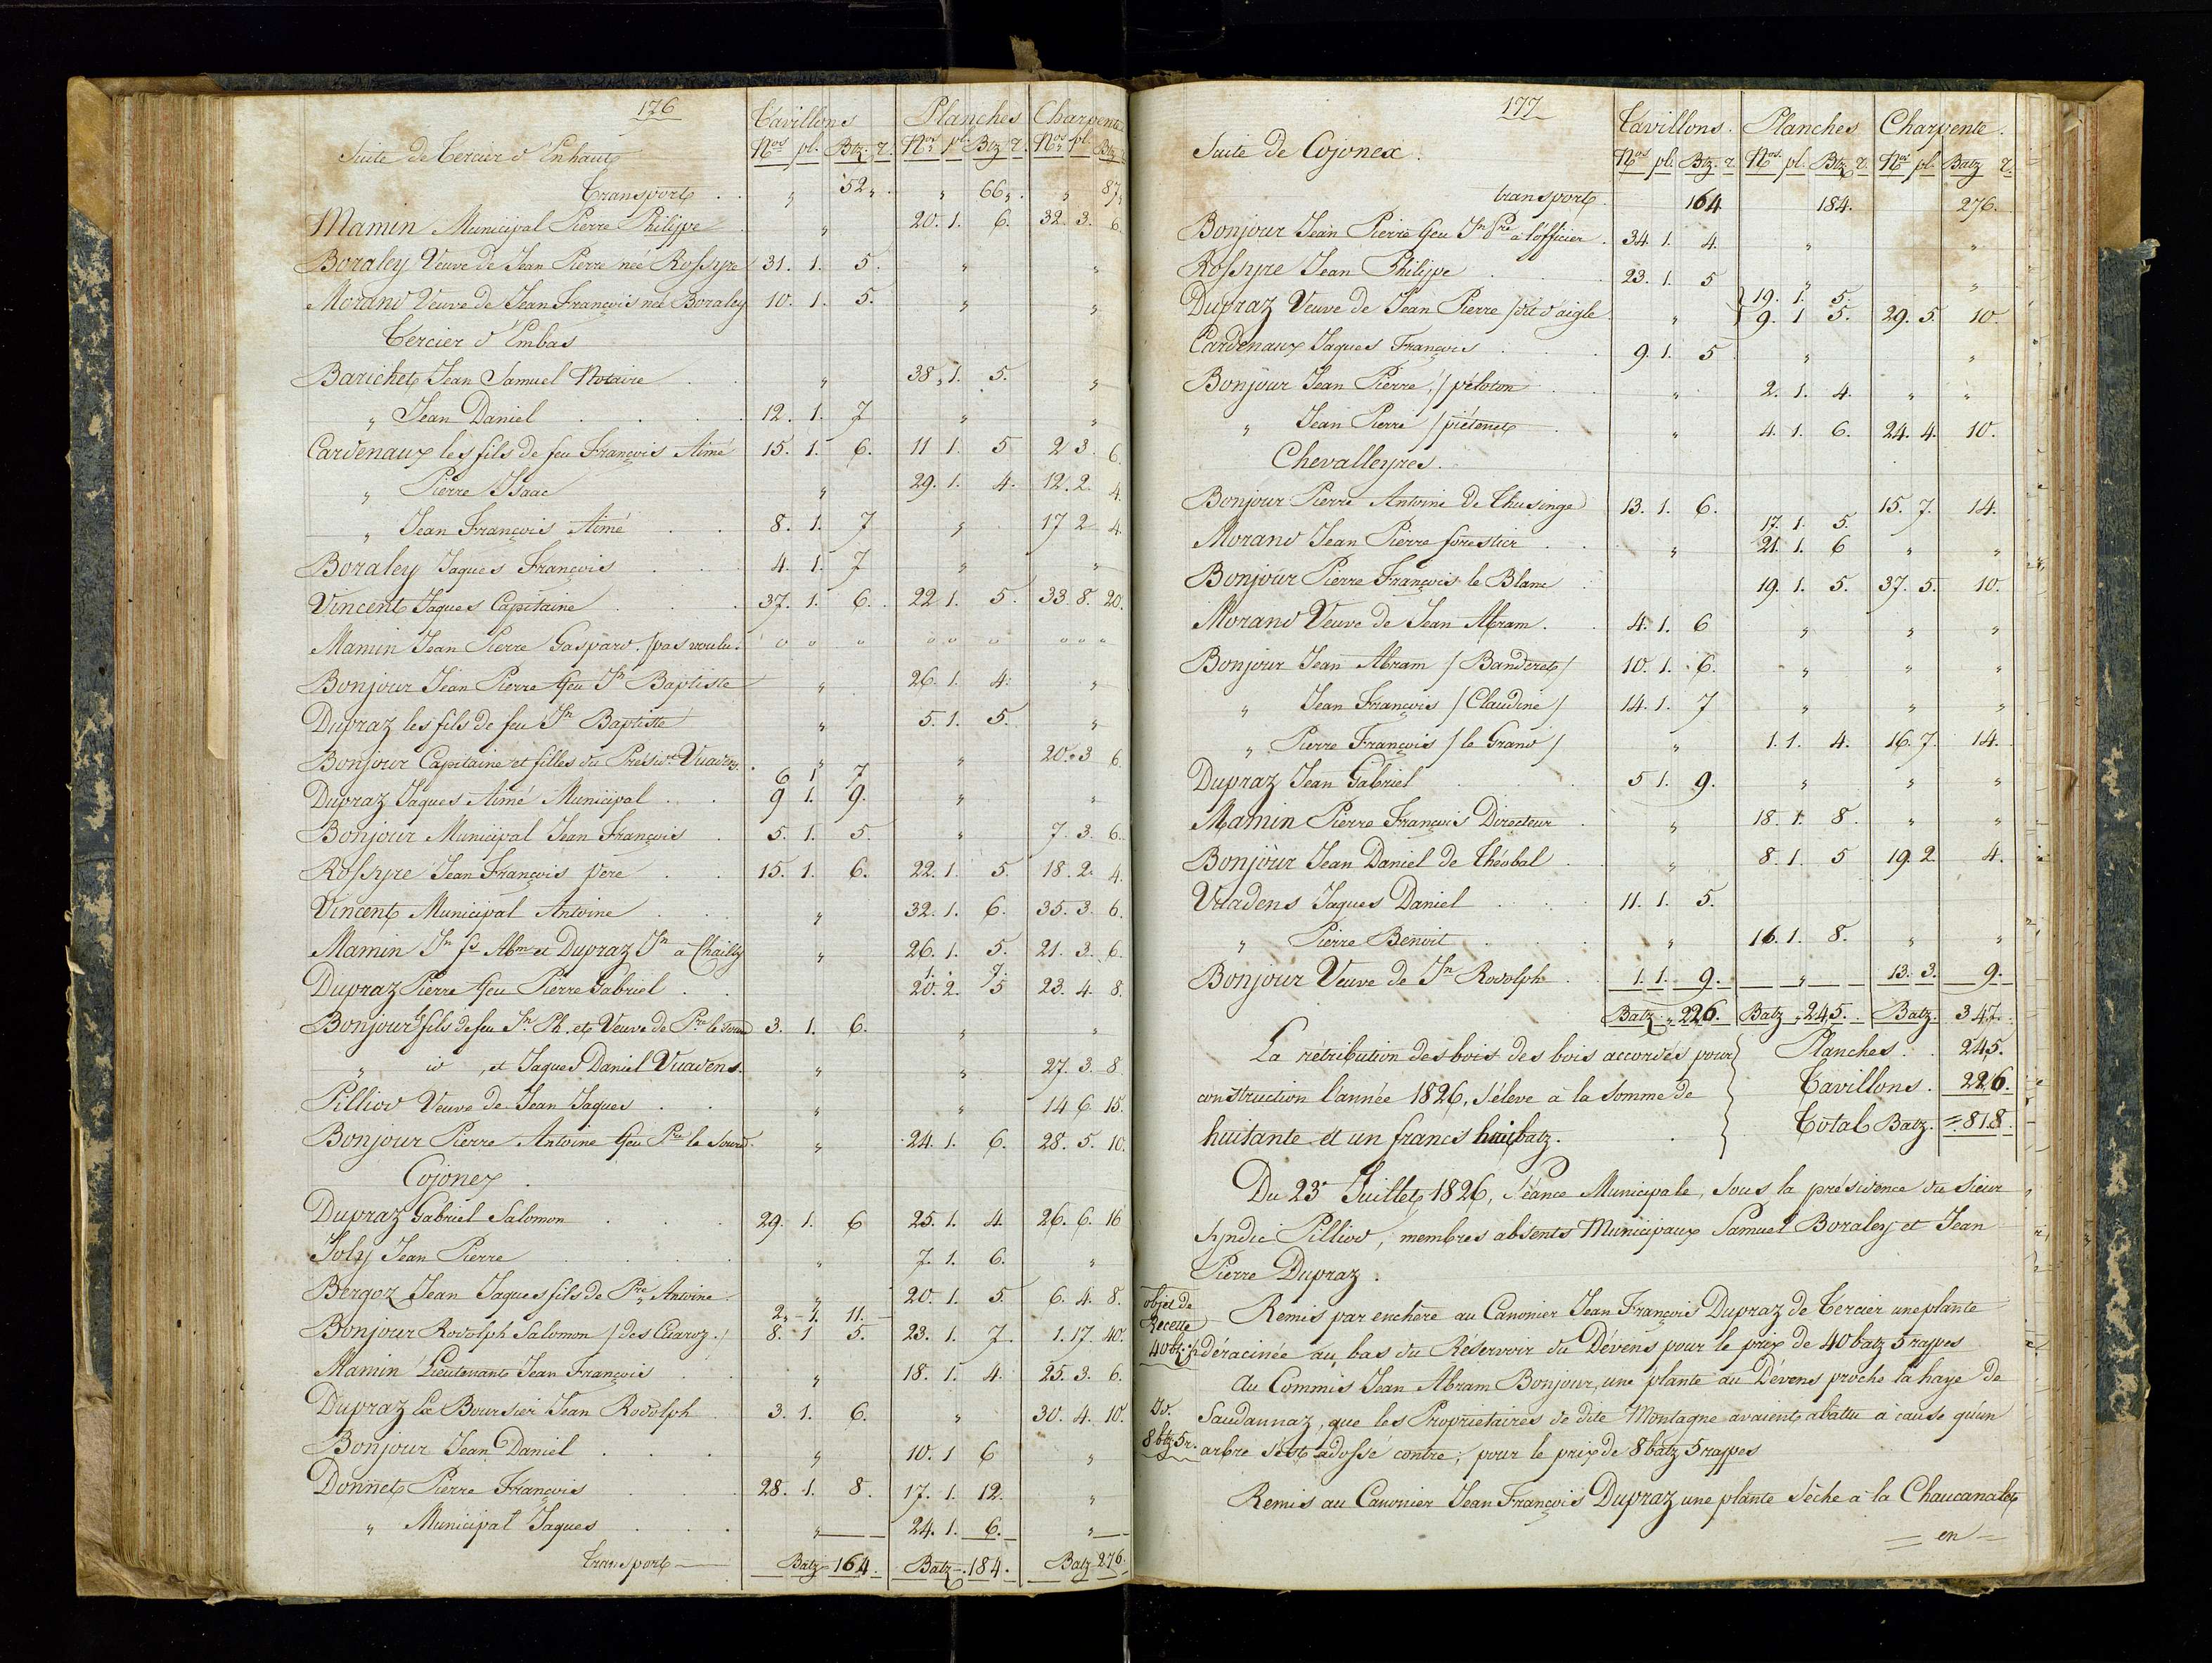 176
Suite de Tercier d'Enhaut Tavillons Planches Charpente
Nos pl. Btz. r. Nos pl. Btz r. Nos pl. Btz
Transport . . " 52 " . " 66 " . " 87 "
Mamin Municipal Pierre Philippe . " 20. 1. 6. 32. 3. 6.
Boraley Veuve de Jean Pierre neé Rossyre 31. 1. 5. " "
Morand Veuve de Jean François née Boraley 10. 1. 5. " "
Tercier d'Embas
Barichet Jean Samuel Notaire . . " 38. 1. 5. "
" Jean Daniel . . . . 12. 1. 7 " "
Cardenaux les fils de feu François Aimé 15. 1. 6. 11 1. 5 2 3. 6.
" Pierre Isaac " 29. 1. 4. 12. 2. 4.
" Jean François Aimé . . 8. 1. 7 " 17 2 4.
Boraley Jaques François . . . 4. 1. 7 " "
Vincent Jaques Capitaine . . . 37. 1. 6. 22 1. 5. 33. 8. 20.
Mamin Jean Pierre Gaspard. /pas voulu. o o o o o o o o o
Bonjour Jean Pierre ffeu Jn Baptiste " 26. 1. 4. "
Dupraz les fils de feu Jn Baptiste " 5. 1. 5. "
Bonjour Capitaine et filles du Presidt Vuadens. . " " 20. 3 6.
6 1 7
Dupraz Jaques Aimé Municipal . . 9 1. 9. " "
Bonjour Municipal Jean François . 5. 1. 5. " 7. 3. 6.
Rossyre Jean François père . . 15. 1. 6. 22. 1. 5. 18. 2. 4.
Vincent Municipal Antoine . . . " 32. 1. 6. 35. 3. 6.
Mamin Jn fs Abm et Dupraz Jn à Chailly " 26. 1. 5. 21. 3. 6.
Dupraz Pierre ffeu Pierre Gabriel . . 20. 2. 5 23. 4. 8.
Bonjour fils de feu Jn Ph. et Veuve de Pre le Sourd 3. 1. 6. " "
" id , et Jaques Daniel Vuadens. " " 27. 3. 8.
Pilliod Veuve de Jean Jaques . . " " 14 6. 15.
Bonjour Pierre Antoine ffeu Pre le Sourd. " 24. 1. 6. 28. 5. 10.
Cojonex .
Dupraz Gabriel Salomon . . . 29. 1. 6 25. 1. 4. 26. 6. 16
Joly Jean Pierre . . . . " 7. 1. 6. "
Bergoz Jean Jaques fils de Pre Antoine. " 20. 1. 5. 6. 4. 8.
2. 1. 11.
Bonjour Rodolph Salomon / des Cuaroz. / 8. 1 5. 23. 1. 7. 1. 17. 40.
Mamin Lieutenant Jean François . . " 18. 1. 4. 25. 3. 6.
Dupraz Ex Boursier Jean Rodolph . 3. 1. 6. " 30. 4. 10.
Bonjour Jean Daniel . . . " 10. 1 6 "
Donnet Pierre François . . . 28. 1. 8. 17. 1. 12. "
" Municipal Jaques . . . " 24. 1. 6. "
Transport Batz 164. Batz 184. Batz 276.
177
Suite de Cojonex . Tavillons. Planches Charpente.
Nos pl. Btz. r. Nos pl. Btz r. Nos pl. Batz r.
transport. 164 184. 276.
Bonjour Jean Pierre ffeu Jn Pre à l'officier . 34. 1. 4. " "
Rossyre Jean Philippe . . . 23. 1. 5 " "
19. 1. 5.
Dupraz Veuve de Jean Pierre / dit d'aigle. " 9. 1 5. 29. 5. 10.
Cardenaux Jaques François . . . 9. 1. 5 . " "
Bonjour Jean Pierre, / péloton . . " 2. 1. 4. " "
" Jean Pierre / piétonet . " 4. 1. 6. 24. 4. 10.
Chevalleyres.
Bonjour Pierre Antoine De Thusinge 13. 1. 6. 15. 7. 14.
17. 1. 5.
Morand Jean Pierre forestier . . " 21. 1. 6 " "
Bonjour Pierre François le Blanc . 19. 1. 5. 37. 5. 10.
Morand Veuve de Jean Abram . . 4. 1. 6 " " "
Bonjour Jean Abram / Banderet / 10. 1. 6. " " "
" Jean François / Claudine / 14. 1. 7 " " "
" Pierre François / le Grand / " 1. 1. 4. 16. 7. 14.
Dupraz Jean Gabriel . . . 5 1. 9. " " "
Mamin Pierre François Directeur . " 18. 1. 8. " "
Bonjour Jean Daniel de Théobal . . " 8. 1. 5 19. 2 4.
Vuadens Jaques Daniel . . . 11. 1. 5.
" Pierre Benoit . . . " 16. 1. 8. " "
Bonjour Veuve de Jn Rodolph . . 1. 1. 9. " 13. 3. 9.
Batz. 226. Batz 245. Batz. 347.
La rétribution des bois des bois accordés pour Planches . . 245.
construction l'année 1826, s'éleve à la Somme de Tavillons . 226.
huitante et un francs huit batz. . Total Batz. = 818.
Du 23e Juillet 1826, Séance Municipale, sous la présidence du Sieur
Syndic Pilliod, membres absents Municipaux Samuel Boraley et Jean
Pierre Dupraz .
objet de Recette 40 btz. 5 r.
Remis par enchère au Canonier Jean François Dupraz de Tercier une plante
déracinée au bas du Réservoir du Dévens pour le prix de 40 batz 5 rappes
Au Commis Jean Abram Bonjour, une plante au Dévens proche la haye de
Do. 8 btz 5 r.
Saudannaz, que les Proprietaires de dite Montagne avaient abattu à cause qu'un
arbre s'est adossé contre; pour le prix de 8 batz 5 rappes
Remis au Canonier Jean François Dupraz une plante sèche à la Chaucanalet
= en =